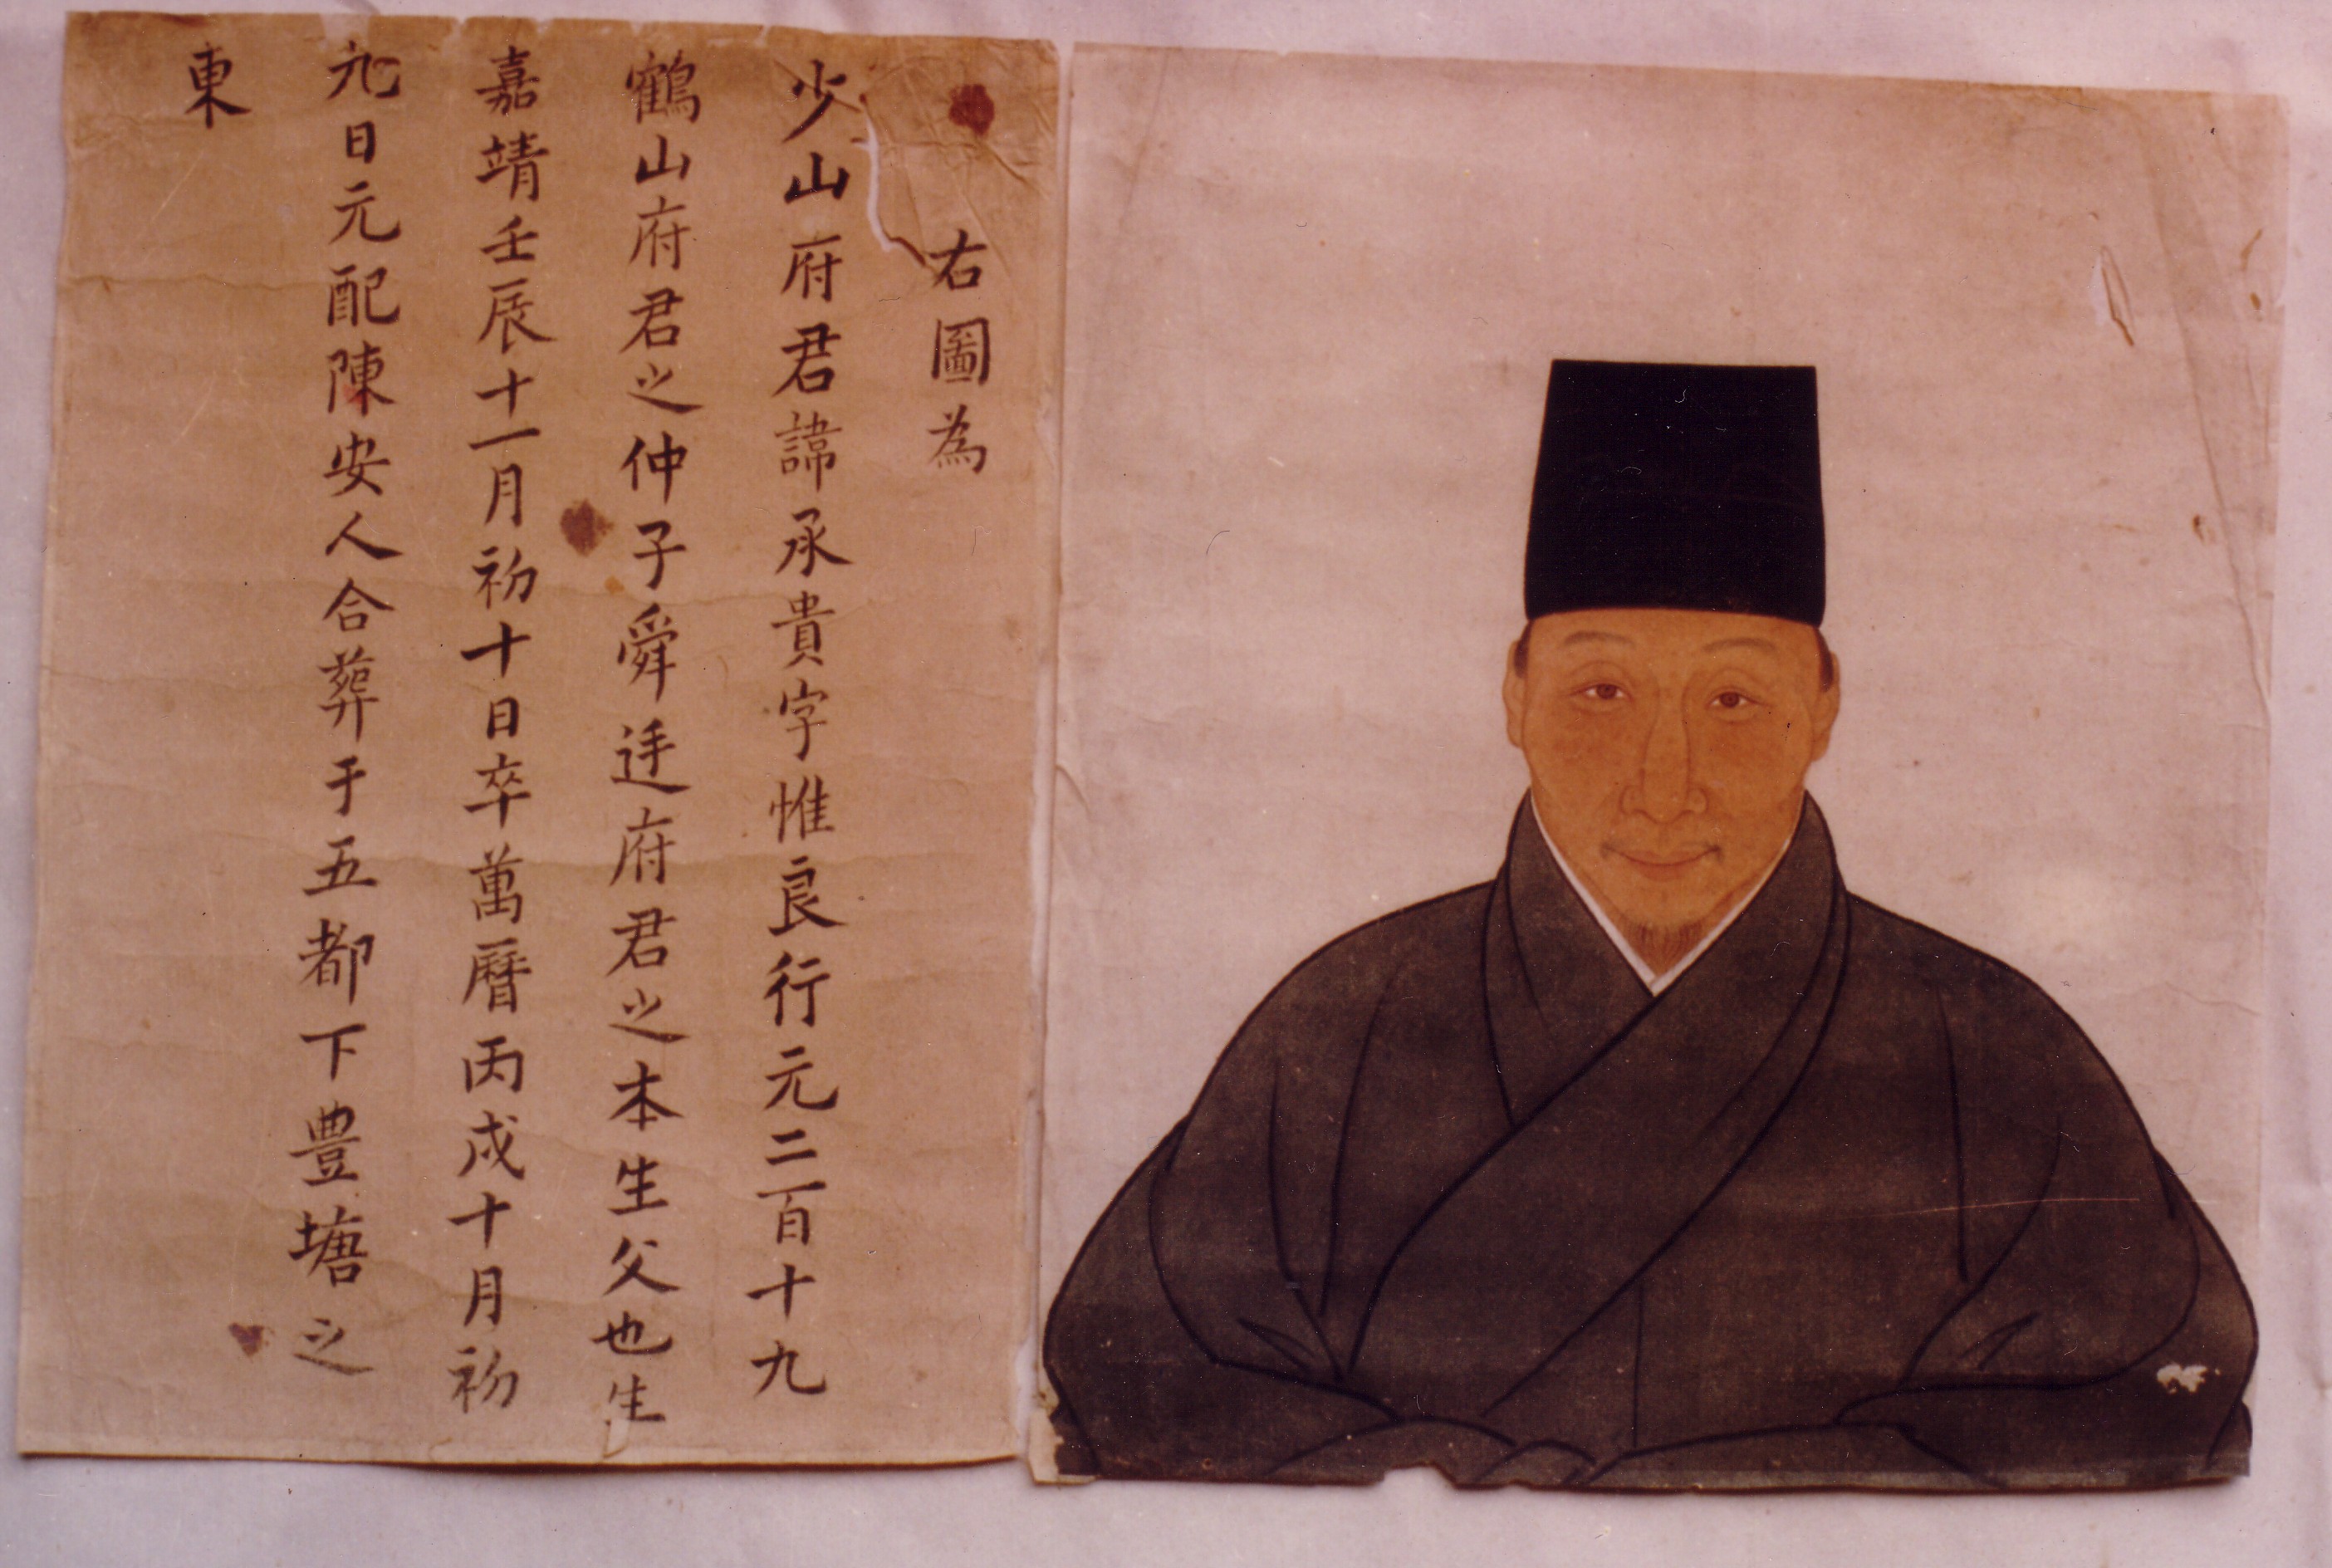 右圖為
少山府君諱承貴字惟良行元二百十九
鶴山府君之仲子舜迋府君之本生父也生
嘉靖壬辰十一月初十日卒萬曆丙戌十月初
九日元配陳安人合葬于五都下豊塘之
東